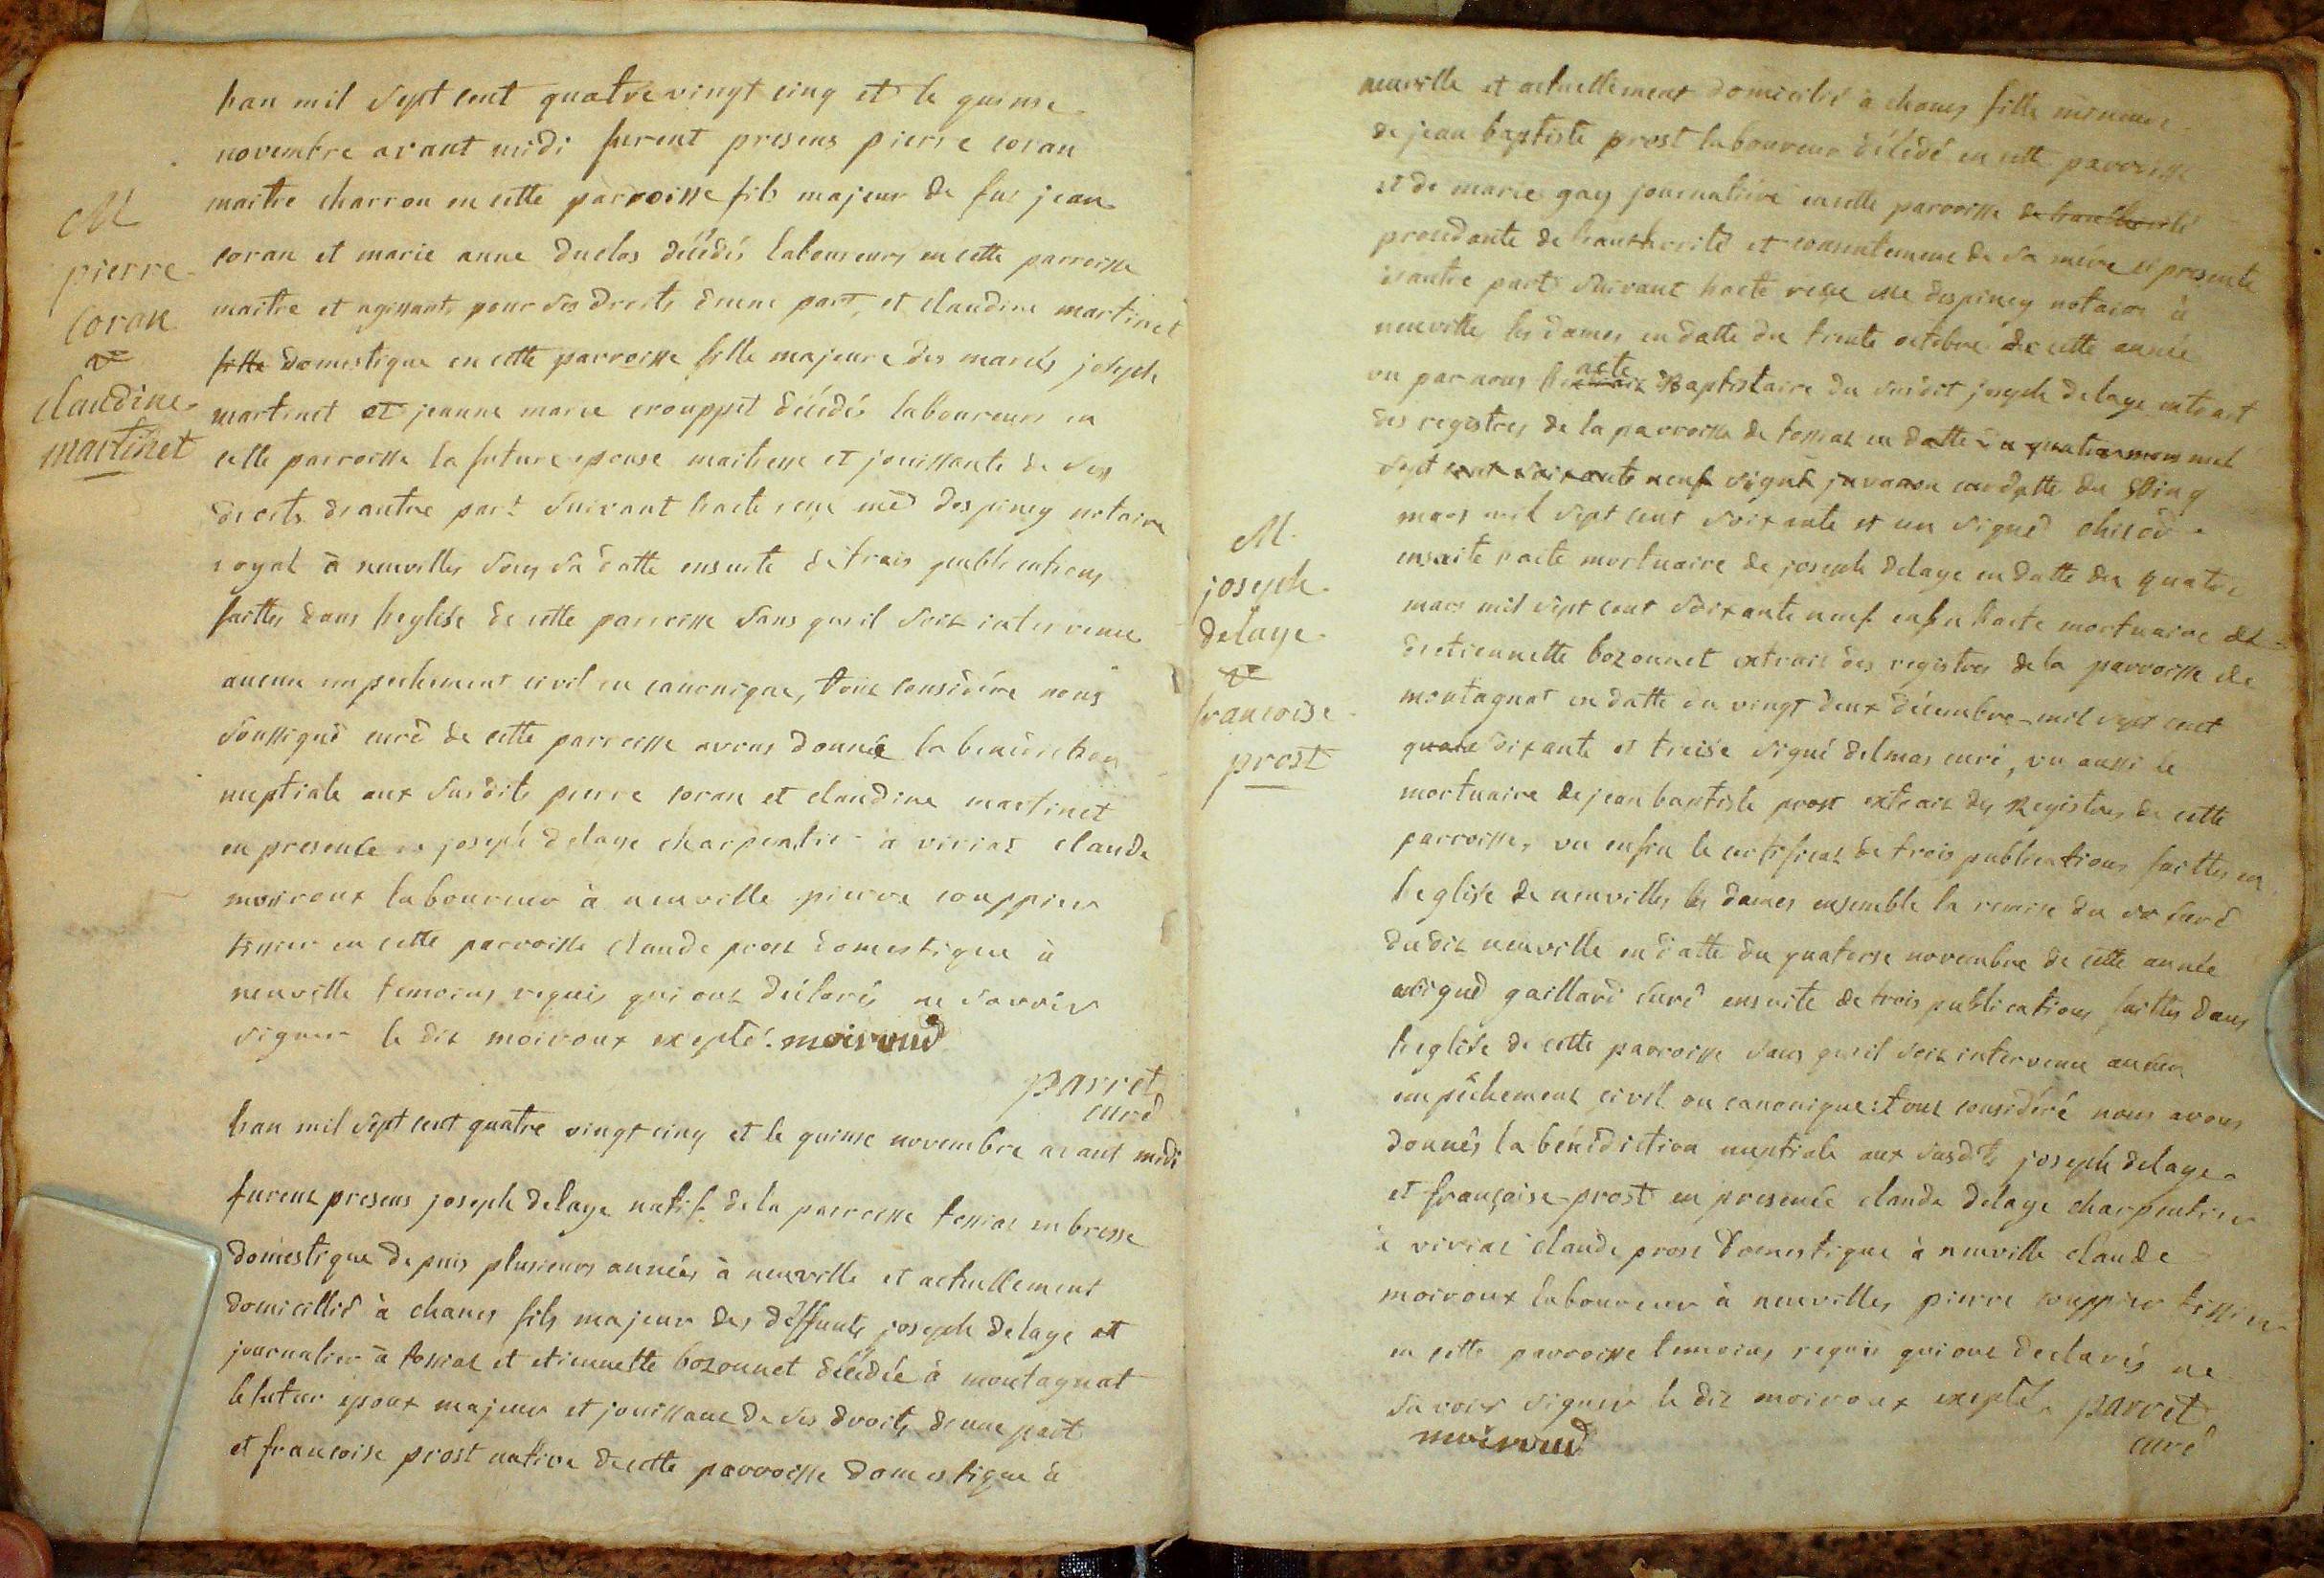 M
pierre
Coran
et
claudine
martinet
han mil sept cent quatre vingt cinq et le quinse
novembre avant midi furent presens pierre coran
maitre charron en cette parroisse fils majeur de fut jean
coran et marie anne duclos décédés laboureurs en cette parroisse
maitre et agissants pour ses droits d'une part, et claudine martinet
fille domestique en cette parroisse fille majeure des mariés joseph
martinet et jeanne marie crouppet décédés laboureurs en
cette parroisse la future epouse maitresse et jouissante de ses
droits d'autre part suivant hacte reçu me despiney notaire
royal à neuvilles sous sa datte ensuite de trois publications
faittes dans heglise de cette parroisse sans qu'il soit intervenue
aucun empechement civil ou canonique, tout considéré nous
soussigné curé de cette parroisse avons donnée la benediction
nuptiale aux susdits pierre coran et claudine martinet
en presence joseph delage charpentier à viriat claude
moiroux laboureur à neuville pierre couppier
tissier en cette parroisse claude prost domestique à
neuville temoins requis qui ont déclarés ne savoir
signer le dit moiroux excepté. moiroud
parret
curé
han mil sept cent quatre vingt cinq et le quinse novembre avant midi
furent presens joseph delage natif de la parroisse tossiat en bresse
domestique depuis plusieurs années à neuville et actuellement
domicillié à chanes fils majeur des deffunts joseph delage et
journalier à tossiat et etiennette bozonnet décédée à montagnat
le futur epoux majeur et jouissant de ses droits d'une part
et francoise prost native de cette parroisse domestique à
M.
joseph
delage
et
francoise
prost
neuville et actuellement domicilié à chanes fille mineure
de jean baptiste prost laboureur décédé en cette parroisse
et de marie gay journalière en cette parroisse de hauthorité
procedante de hauthorité et consentement de sa mère si presente
d'autre part suivant hacte reçu me despiney notaire à
neuville les dames en datte du trente octobre de cette année
vu par nous acte Baptistaire du susdit joseph delage extrait
des registres de la parroisse de tossiat en datte du quatre mars mil
sept cent soixante neuf signé en datte du cinq
mars mil sept cent soixante et un signé chicod
ensuite hacte mortuaire de joseph delage en datte du quatre
mars mil sept cent soixante neuf enfin hacte mortuaire de
d'etiennette bozonnet extrait des registres de la parroisse de
montagnat en datte du vingt deux décembre mil sept cent
quat soixante et treise signé delmas curé, vu aussi le
mortuaire de jean baptiste prost extrait des Registres de cette
parroisse, vu enfin le certificat de trois publications faittes en
l'eglise de neuvilles les dames ensemble la remise du sr curé
dudit neuville en datte du quatorse novembre de cette année
signé gaillard curé ensuite de trois publications faittes dans
heglise de cette parroisse sans qu'il soit intervenu aucun
empêchement civil ou canonique: tout considéré nous avons
donnés la bénédiction nuptiale aux susdits joseph delage
et françoise prost en presence claude delage charpentier
à viriat claude prost domestique à neuville claude
moiroux laboureur à neuvilles pierre couppier tissier
en cette parroisse temoins requis qui ont declarés ne
savoir signer le dit moiroux excepté. parret
moiroud
curé